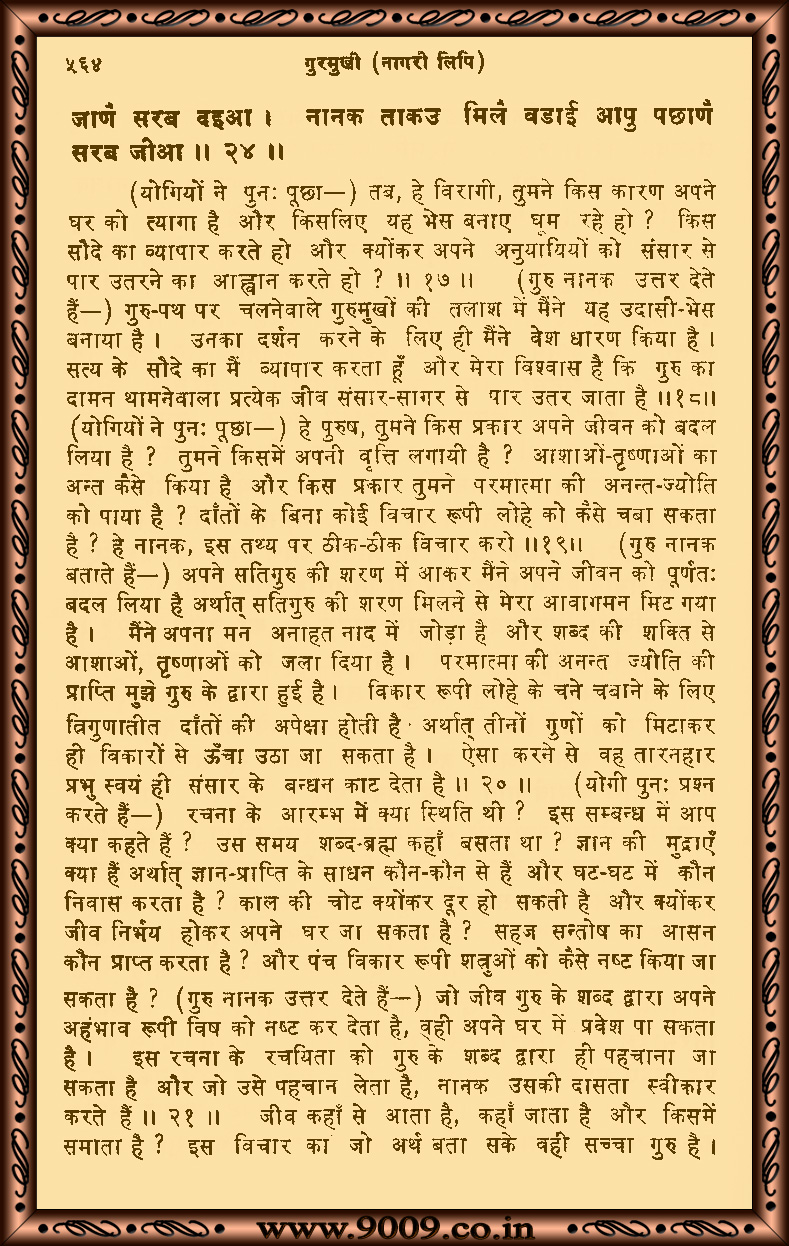 ५६४ गुरमुखी (नागरी लिपि)
जाणै सरब दइआ । नानक ताकउ मिलै वडाई आपु पछाणै
सरब जीआ ॥ २४ ॥
(योगियों ने पुनः पूछा—) तब, हे विरागी, तुमने किस कारण अपने
घर को त्यागा है और किसलिए यह भेस बनाए घूम रहे हो ? किस
सौदे का व्यापार करते हो और क्योंकर अपने अनुयायियों को संसार से
पार उतरने का आह्वान करते हो ? ॥ १७ ॥ (गुरु नानक उत्तर देते
हैं—) गुरु-पथ पर चलनेवाले गुरुमुखों की तलाश में मैंने यह उदासी-भेस
बनाया है । उनका दर्शन करने के लिए ही मैंने वेश धारण किया है ।
सत्य के सौदे का मैं व्यापार करता हूँ और मेरा विश्वास है कि गुरु का
दामन थामनेवाला प्रत्येक जीव संसार-सागर से पार उतर जाता है ॥१८॥
(योगियों ने पुनः पूछा—) हे पुरुष, तुमने किस प्रकार अपने जीवन को बदल
लिया है ? तुमने किसमें अपनी वृत्ति लगायी है ? आशाओं-तृष्णाओं का
अन्त कैसे किया है और किस प्रकार तुमने परमात्मा की अनन्त-ज्योति
को पाया है ? दाँतों के बिना कोई विचार रूपी लोहे को कैसे चबा सकता
है ? हे नानक, इस तथ्य पर ठीक-ठीक विचार करो ॥१९॥ (गुरु नानक
बताते हैं—) अपने सतिगुरु की शरण में आकर मैंने अपने जीवन को पूर्णतः
बदल लिया है अर्थात् सतिगुरु की शरण मिलने से मेरा आवागमन मिट गया
है । मैंने अपना मन अनाहत नाद में जोड़ा है और शब्द की शक्ति से
आशाओं, तृष्णाओं को जला दिया है । परमात्मा की अनन्त ज्योति की
प्राप्ति मुझे गुरु के द्वारा हुई है । विकार रूपी लोहे के चने चबाने के लिए
त्रिगुणातीत दाँतों की अपेक्षा होती है · अर्थात् तीनों गुणों को मिटाकर
ही विकारों से ऊँचा उठा जा सकता है । ऐसा करने से वह तारनहार
प्रभु स्वयं ही संसार के बन्धन काट देता है ॥ २० ॥ (योगी पुनः प्रश्न
करते हैं—) रचना के आरम्भ में क्या स्थिति थी ? इस सम्बन्ध में आप
क्या कहते हैं ? उस समय शब्द-ब्रह्म कहाँ बसता था ? ज्ञान की मुद्राएँ
क्या हैं अर्थात् ज्ञान-प्राप्ति के साधन कौन-कौन से हैं और घट-घट में कौन
निवास करता है ? काल की चोट क्योंकर दूर हो सकती है और क्योंकर
जीव निर्भय होकर अपने घर जा सकता है ? सहज सन्तोष का आसन
कौन प्राप्त करता है ? और पंच विकार रूपी शत्रुओं को कैसे नष्ट किया जा
सकता है ? (गुरु नानक उत्तर देते हैं—) जो जीव गुरु के शब्द द्वारा अपने
अहंभाव रूपी विष को नष्ट कर देता है, वही अपने घर में प्रवेश पा सकता
है । इस रचना के रचयिता को गुरु के शब्द द्वारा ही पहचाना जा
सकता है और जो उसे पहचान लेता है, नानक उसकी दासता स्वीकार
करते हैं ॥ २१ ॥ जीव कहाँ से आता है, कहाँ जाता है और किसमें
समाता है ? इस विचार का जो अर्थ बता सके वही सच्चा गुरु है ।
www.9009.co.in